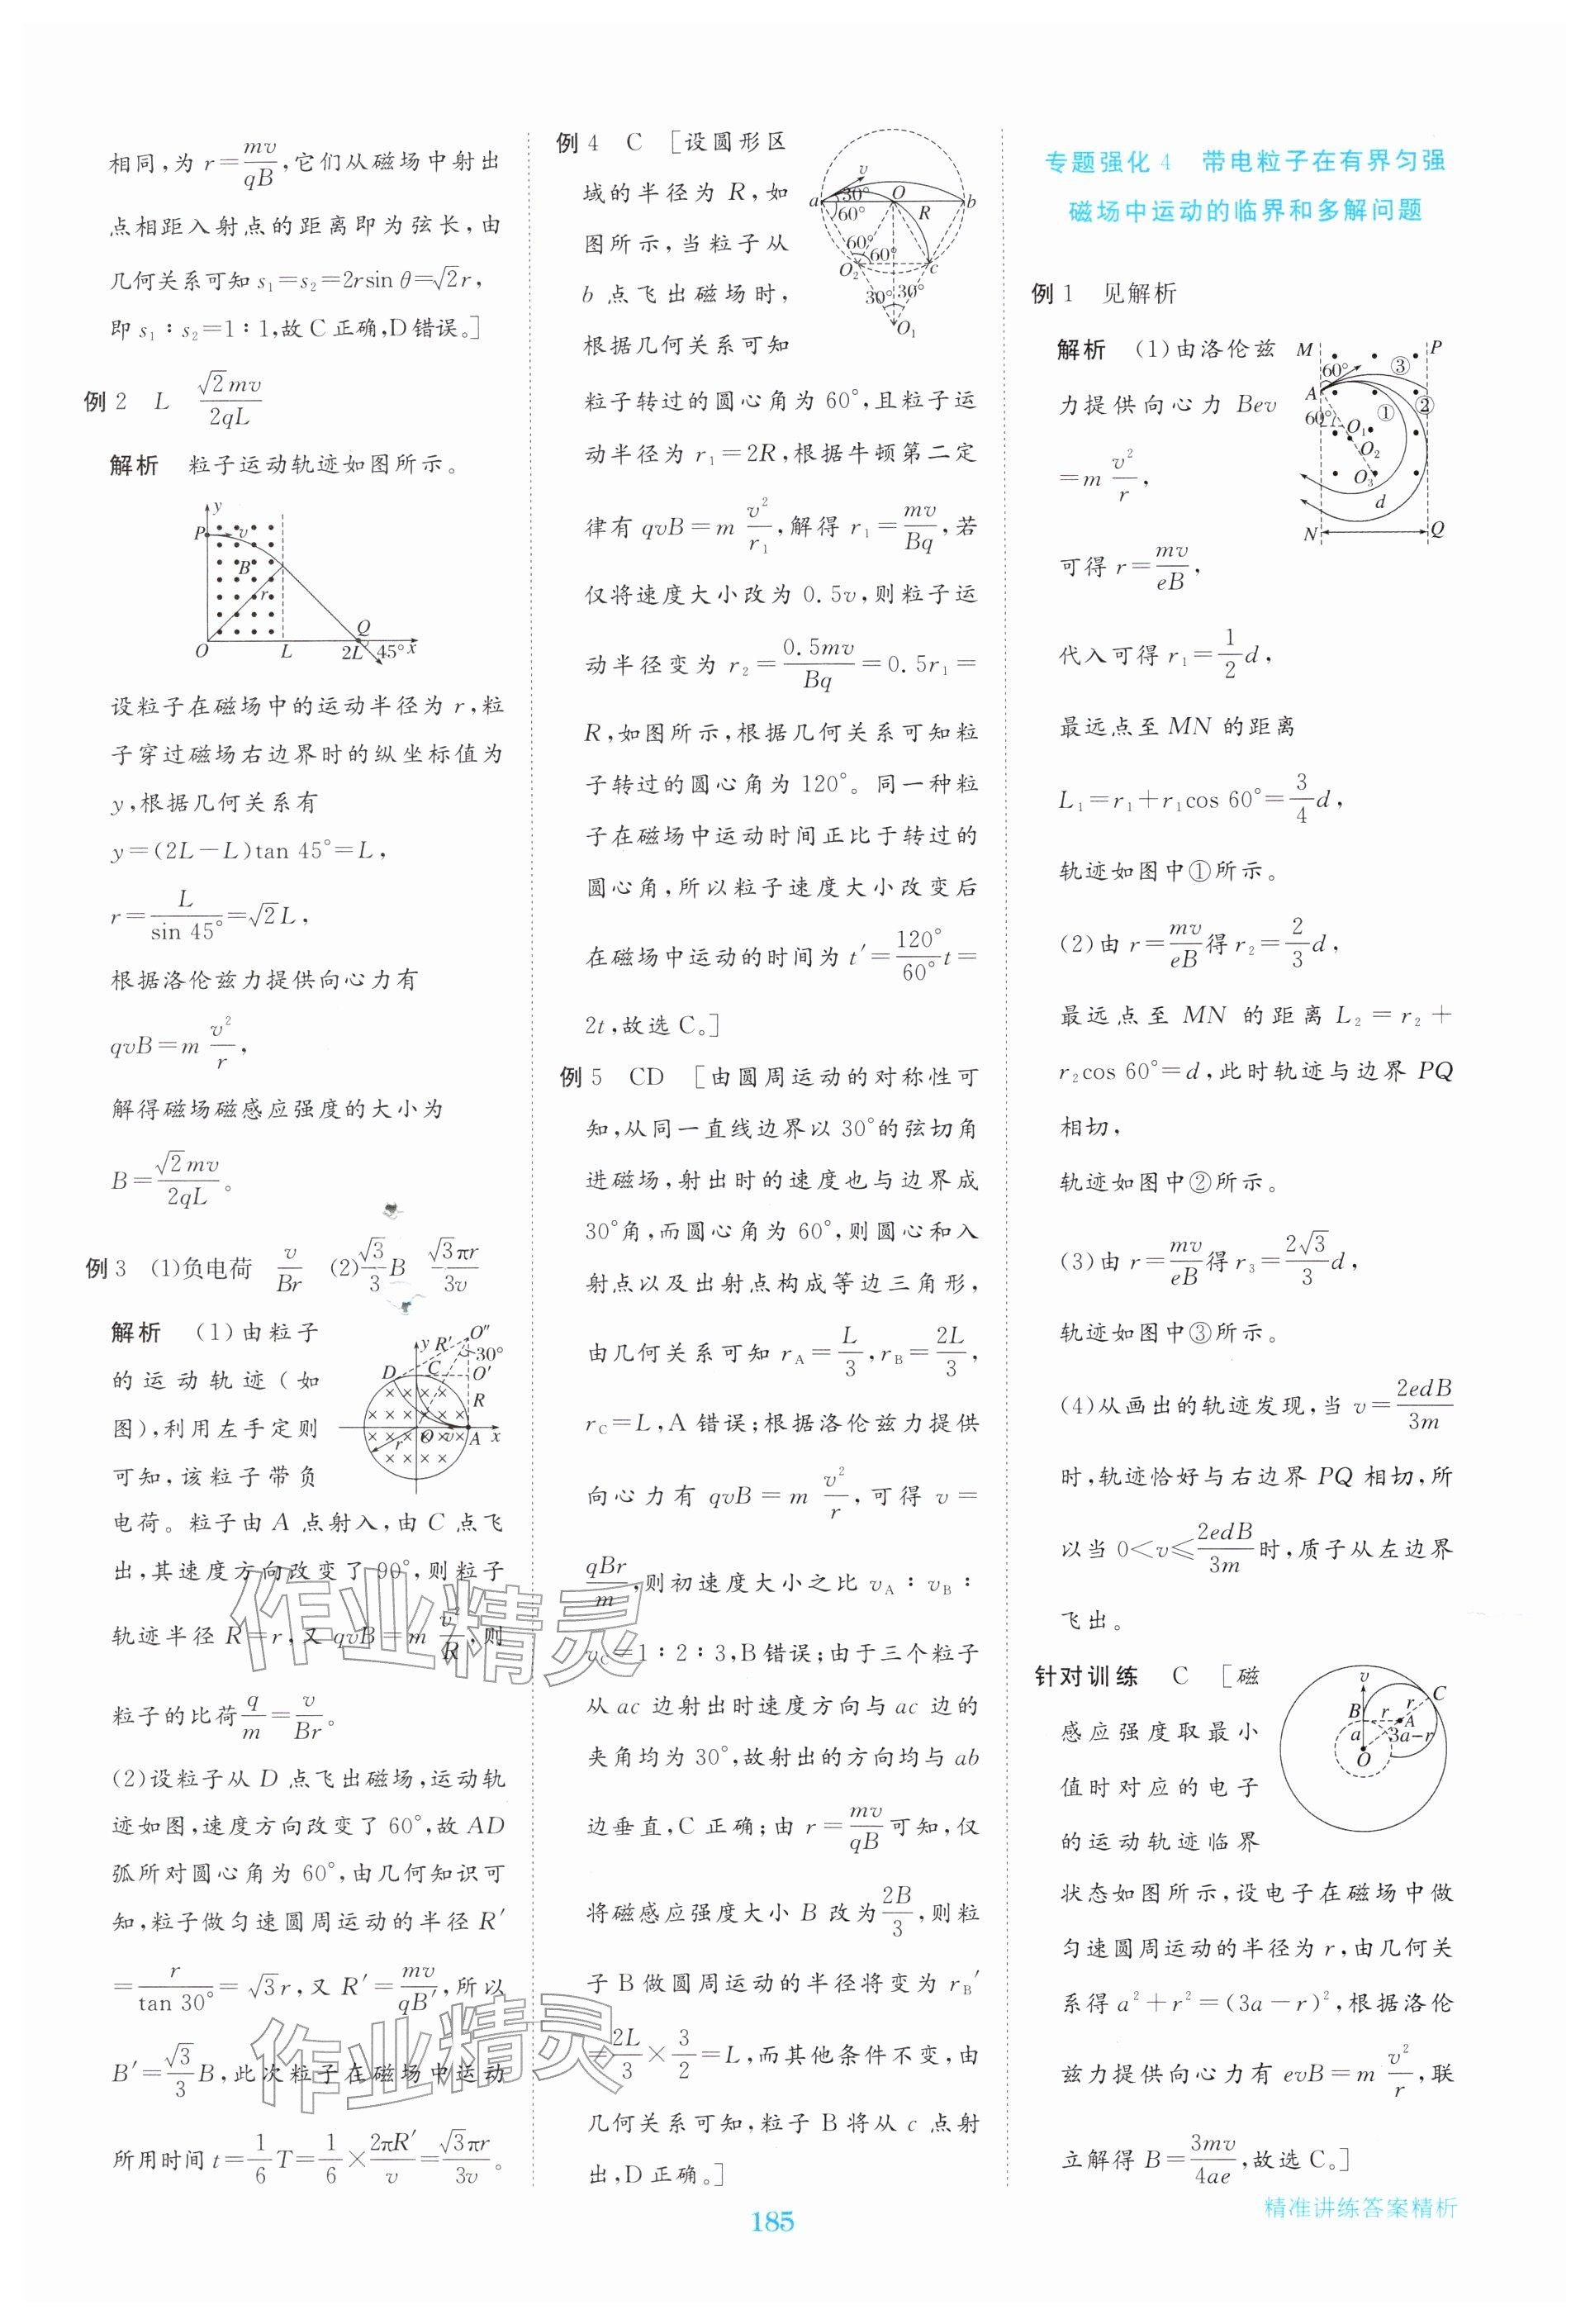 相同,为 r=mv/qB,它们从磁场中射出
点相距入射点的距离即为弦长,由
几何关系可知 s₁=s₂=2rsin θ=√2r,
即 s₁∶s₂=1∶1,故C正确,D错误。]
例2 L √2mv/2qL
解析 粒子运动轨迹如图所示。
y
P v
B
r
Q
O L 2L 45° x
设粒子在磁场中的运动半径为 r,粒
子穿过磁场右边界时的纵坐标值为
y,根据几何关系有
y=(2L-L)tan 45°=L,
r=L/sin 45°=√2L,
根据洛伦兹力提供向心力有
qvB=m v²/r,
解得磁场磁感应强度的大小为
B=√2mv/2qL。
例3 (1)负电荷 v/Br (2)√3/3 B √3πr/3v
解析 (1)由粒子
的运动轨迹(如
图),利用左手定则
可知,该粒子带负
电荷。粒子由 A 点射入,由 C 点飞
出,其速度方向改变了 90°,则粒子
轨迹半径 R=r,又 qvB=m v²/R,则
粒子的比荷 q/m=v/Br。
y R′ O″
30°
D C O′
R
r O v A x
(2)设粒子从 D 点飞出磁场,运动轨
迹如图,速度方向改变了 60°,故 AD
弧所对圆心角为 60°,由几何知识可
知,粒子做匀速圆周运动的半径 R′
=r/tan 30°=√3r,又 R′=mv/qB′,所以
B′=√3/3 B,此次粒子在磁场中运动
所用时间 t=1/6 T=1/6×2πR′/v=√3πr/3v。
例4 C [设圆形区
域的半径为 R,如
图所示,当粒子从
b 点飞出磁场时,
根据几何关系可知
v
a 30° O b
60° R
60° 60°
O₂ c
30° 30°
O₁
粒子转过的圆心角为 60°,且粒子运
动半径为 r₁=2R,根据牛顿第二定
律有 qvB=m v²/r₁,解得 r₁=mv/Bq,若
仅将速度大小改为 0.5v,则粒子运
动半径变为 r₂=0.5mv/Bq=0.5r₁=
R,如图所示,根据几何关系可知粒
子转过的圆心角为 120°。同一种粒
子在磁场中运动时间正比于转过的
圆心角,所以粒子速度大小改变后
在磁场中运动的时间为 t′=120°/60° t=
2t,故选C。]
例5 CD [由圆周运动的对称性可
知,从同一直线边界以 30°的弦切角
进磁场,射出时的速度也与边界成
30°角,而圆心角为 60°,则圆心和入
射点以及出射点构成等边三角形,
由几何关系可知 r_A=L/3,r_B=2L/3,
r_C=L,A错误;根据洛伦兹力提供
向心力有 qvB=m v²/r,可得 v=
qBr/m,则初速度大小之比 v_A∶v_B∶
v_C=1∶2∶3,B错误;由于三个粒子
从 ac 边射出时速度方向与 ac 边的
夹角均为 30°,故射出的方向均与 ab
边垂直,C正确;由 r=mv/qB可知,仅
将磁感应强度大小 B 改为2B/3,则粒
子B做圆周运动的半径将变为 r_B′
=2L/3×3/2=L,而其他条件不变,由
几何关系可知,粒子B将从 c 点射
出,D正确。]
专题强化4 带电粒子在有界匀强
磁场中运动的临界和多解问题
例1 见解析
解析 (1)由洛伦兹
力提供向心力 Bev
=m v²/r,
可得 r=mv/eB,
M P
60° ③
A ① ②
60° O₁
O₂
O₃
d
N Q
代入可得 r₁=1/2 d,
最远点至 MN 的距离
L₁=r₁+r₁cos 60°=3/4 d,
轨迹如图中①所示。
(2)由 r=mv/eB得 r₂=2/3 d,
最远点至 MN 的距离 L₂=r₂+
r₂cos 60°=d,此时轨迹与边界 PQ
相切,
轨迹如图中②所示。
(3)由 r=mv/eB得 r₃=2√3/3 d,
轨迹如图中③所示。
(4)从画出的轨迹发现,当 v=2edB/3m
时,轨迹恰好与右边界 PQ 相切,所
以当 0<v≤2edB/3m时,质子从左边界
飞出。
针对训练 C [磁
感应强度取最小
值时对应的电子
的运动轨迹临界
v
B r r C
A
a 3a-r
O
状态如图所示,设电子在磁场中做
匀速圆周运动的半径为 r,由几何关
系得 a²+r²=(3a-r)²,根据洛伦
兹力提供向心力有 evB=m v²/r,联
立解得 B=3mv/4ae,故选C。]
作业精灵
作业精灵
185
精准讲练答案精析